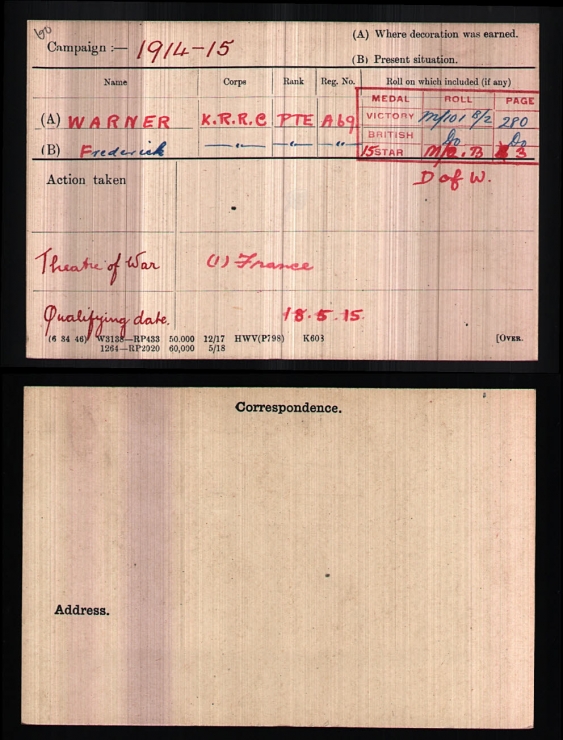 60
Campaign :— 1914-15
(A) Where decoration was earned.
(B) Present situation.
Name Corps Rank Reg. No. Roll on which included (if any)
MEDAL ROLL PAGE
(A) WARNER K.R.R.C PTE A69 VICTORY M/101 B/2 280
BRITISH Do Do
(B) Frederick —"— —"— —"— 15 STAR M/2. B 3
Action taken D of W.
Theatre of War (1) France
Qualifying date. 18.5.15.
(6 34 46) W3133—RP433 50.000 12/17 HWV(P798) K608 [OVER.
1264—RP2020 60,000 5/18
Correspondence.
Address.